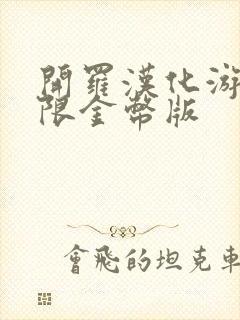 開羅漢化游
限金幣版
會飛的坦克車